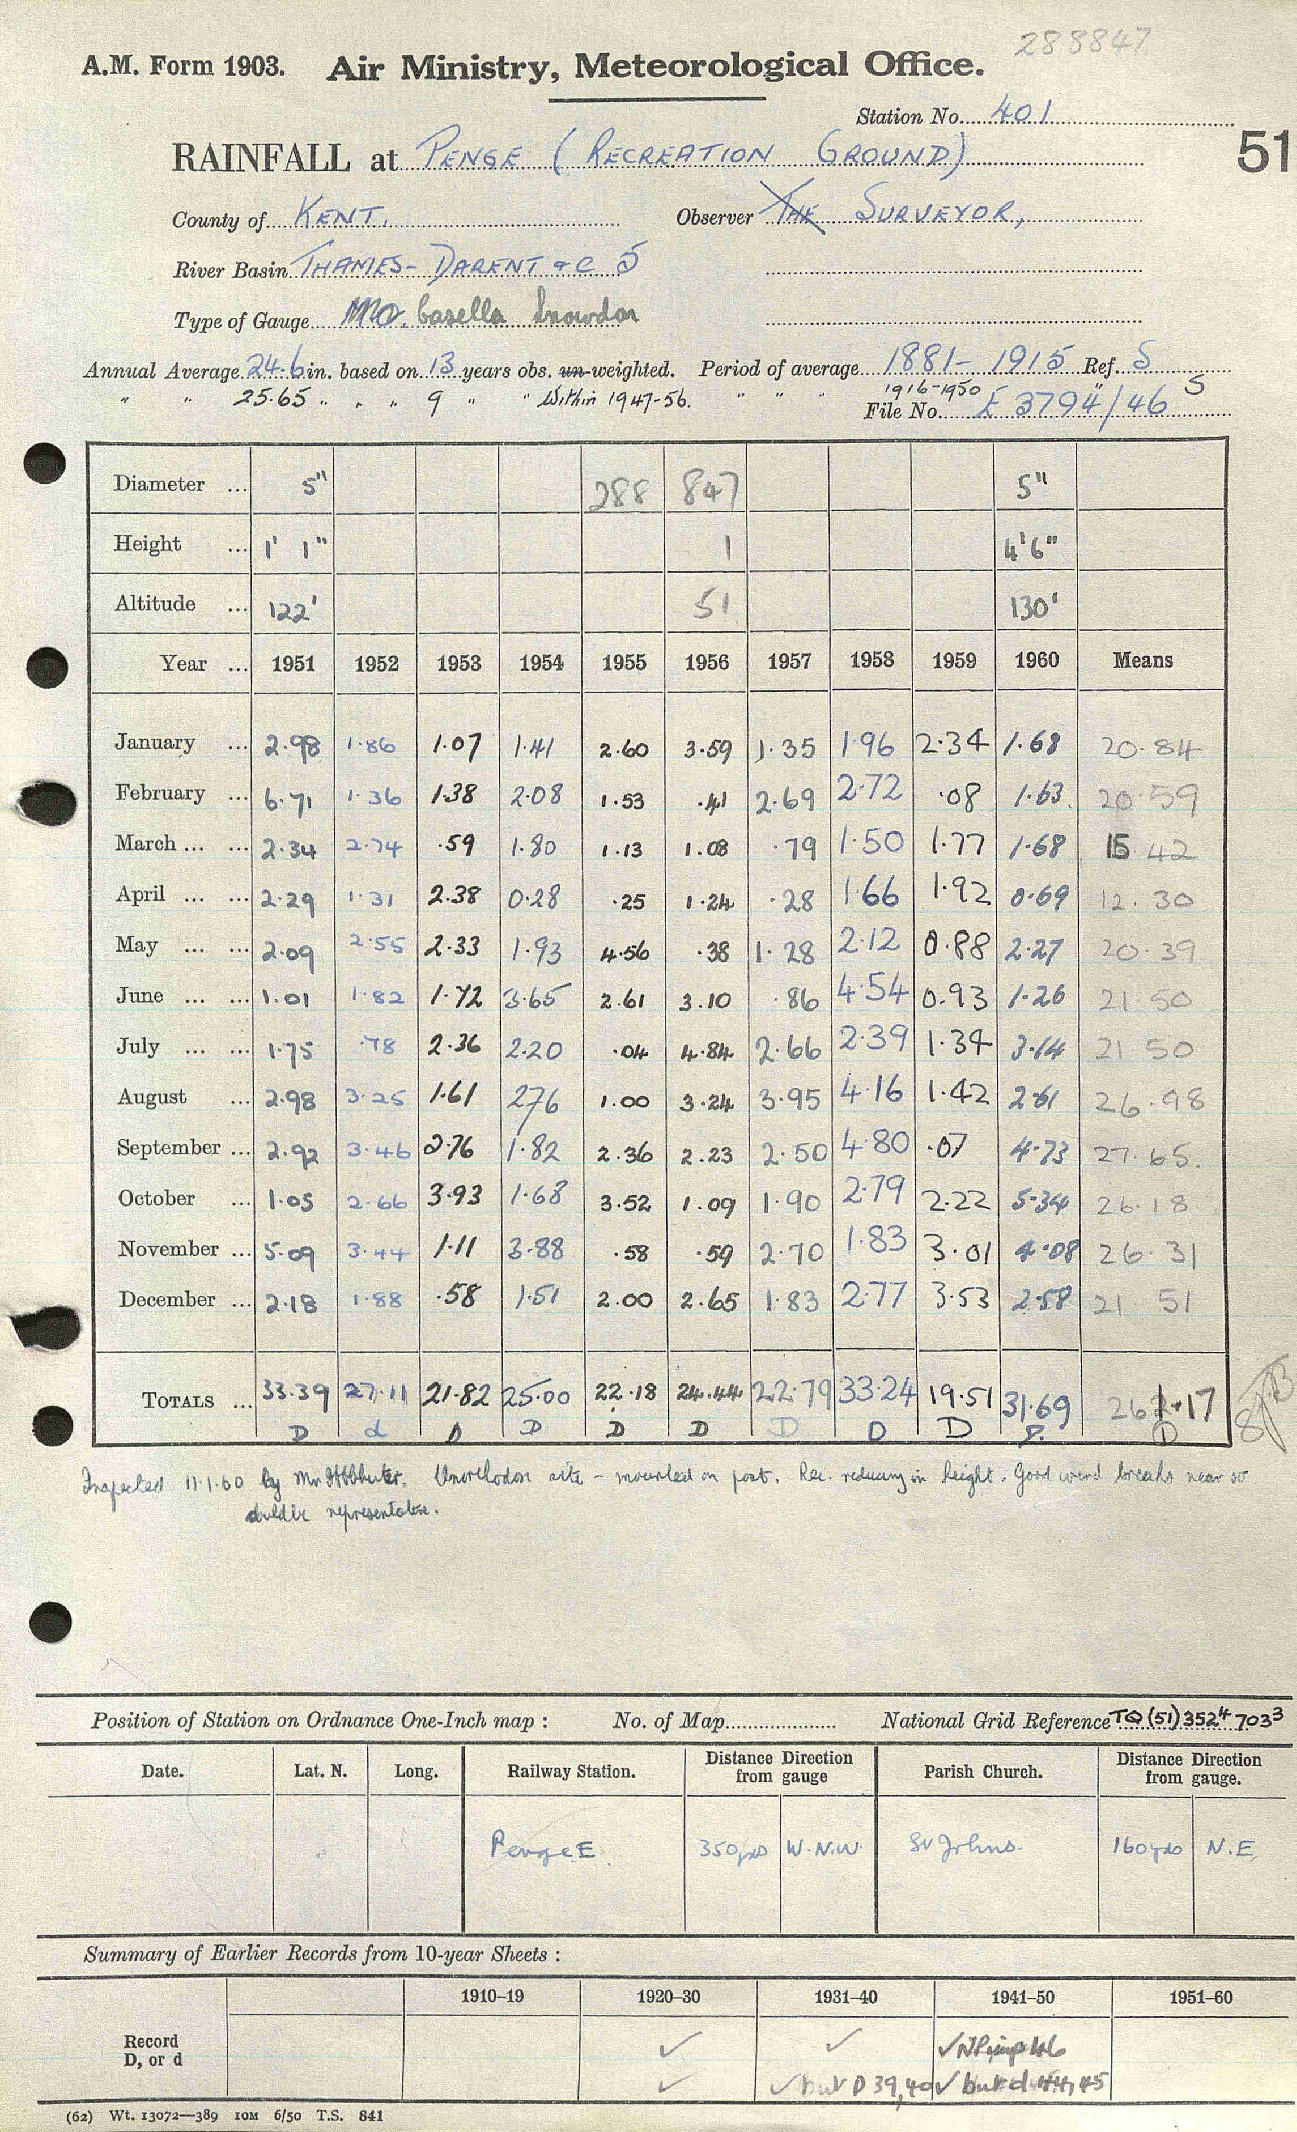 288847
A.M. Form 1903. Air Ministry, Meteorological Office.
Station No. 401
51
RAINFALL at PENGE (RECREATION GROUND)
County of KENT. Observer THE SURVEYOR,
River Basin THAMES - DARENT & C 5
Type of Gauge MO. Casella Snowdon
Annual Average 24.6 in. based on 13 years obs. un-weighted. Period of average 1881-1915 Ref. S
" " 25.65 " " " 9 " " Within 1947-56. " " " 1916-1950 " S
File No. £ 3794/46
Diameter ... 5" 288 847 5"
Height ... 1' 1" 1 4'6"
Altitude ... 122' 51 130'
Year ... 1951 1952 1953 1954 1955 1956 1957 1958 1959 1960 Means
January ... 2.98 1.86 1.07 1.41 2.60 3.59 1.35 1.96 2.34 1.68 20.84
February ... 6.71 1.36 1.38 2.08 1.53 .41 2.69 2.72 .08 1.63 20.59
March ... ... 2.34 2.74 .59 1.80 1.13 1.08 .79 1.50 1.77 1.68 15.42
April ... ... 2.29 1.31 2.38 0.28 .25 1.24 .28 1.66 1.92 0.69 12.30
May ... ... 2.09 2.55 2.33 1.93 4.56 .38 1.28 2.12 0.88 2.27 20.39
June ... ... 1.01 1.82 1.72 3.65 2.61 3.10 .86 4.54 0.93 1.26 21.50
July ... ... 1.75 .78 2.36 2.20 .04 4.84 2.66 2.39 1.34 3.14 21 50
August ... 2.98 3.25 1.61 2.76 1.00 3.24 3.95 4.16 1.42 2.61 26.98
September ... 2.92 3.46 2.76 1.82 2.36 2.23 2.50 4.80 .07 4.73 27.65.
October ... 1.05 2.66 3.93 1.68 3.52 1.09 1.90 2.79 2.22 5.34 26.18
November ... 5.09 3.44 1.11 3.88 .58 .59 2.70 1.83 3.01 4.08 26.31
December ... 2.18 1.88 .58 1.51 2.00 2.65 1.83 2.77 3.53 2.58 21 51
TOTALS ... 33.39 27.11 21.82 25.00 22.18 24.44 22.79 33.24 19.51 31.69 261.17
D d D D D D D D D D. D
Inspected 11.1.60 by Mr. Unorthodox site - mounted on post. Rec. reducing in height. Good wind breaks near so
should be representative.
Position of Station on Ordnance One-Inch map : No. of Map National Grid Reference TQ (51) 352⁴ 703³
Date. Lat. N. Long. Railway Station. Distance Direction from gauge Parish Church. Distance Direction from gauge.
Penge E. 350 yds W.N.W. St Johns. 160 yds N.E.
Summary of Earlier Records from 10-year Sheets :
1910-19 1920-30 1931-40 1941-50 1951-60
Record ✓ ✓ ✓
D, or d ✓ ✓ but D 39,40 ✓ but d 44, 45
(62) Wt. 13072—389 10M 6/50 T.S. 841